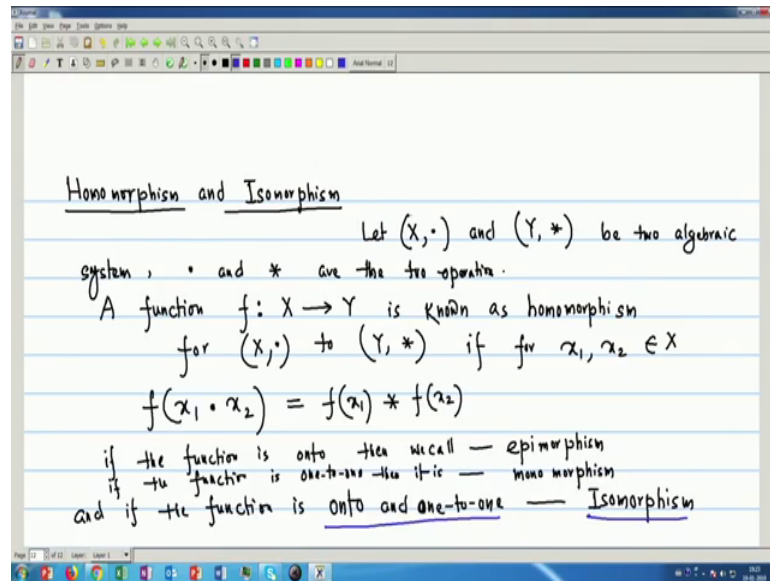 File Edit View Page Tools Options Help
Arial Normal 12
Homomorphism and Isomorphism
Let (X, •) and (Y, *) be two algebraic
system, • and * are the two operation.
A function f: X → Y is known as homomorphism
for (X, •) to (Y, *) if for x₁, x₂ ∈ X
f(x₁ • x₂) = f(x₁) * f(x₂)
if the function is onto then we call — epimorphism
if the function is one-to-one then it is — monomorphism
and if the function is onto and one-to-one — Isomorphism
Page 12 of 12 Layer: Layer 1